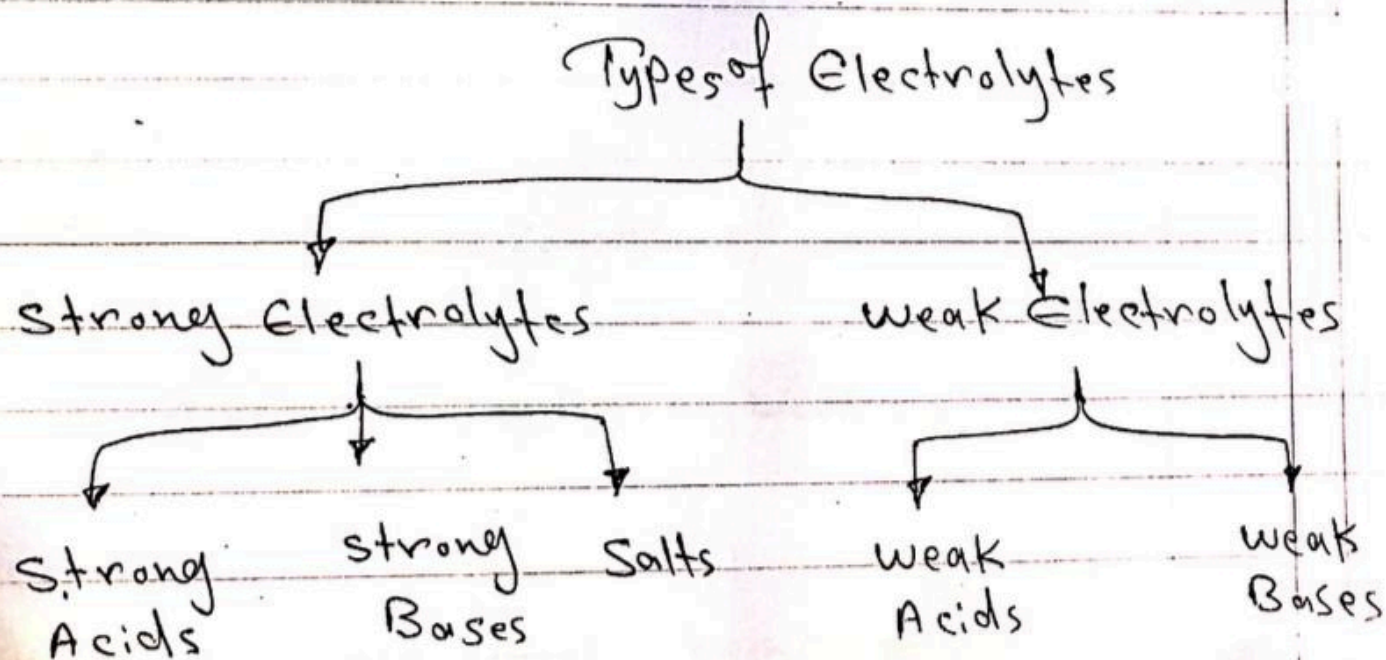 Types of Electrolytes
Strong Electrolytes
weak Electrolytes
Strong Acids
strong Bases
Salts
weak Acids
weak Bases